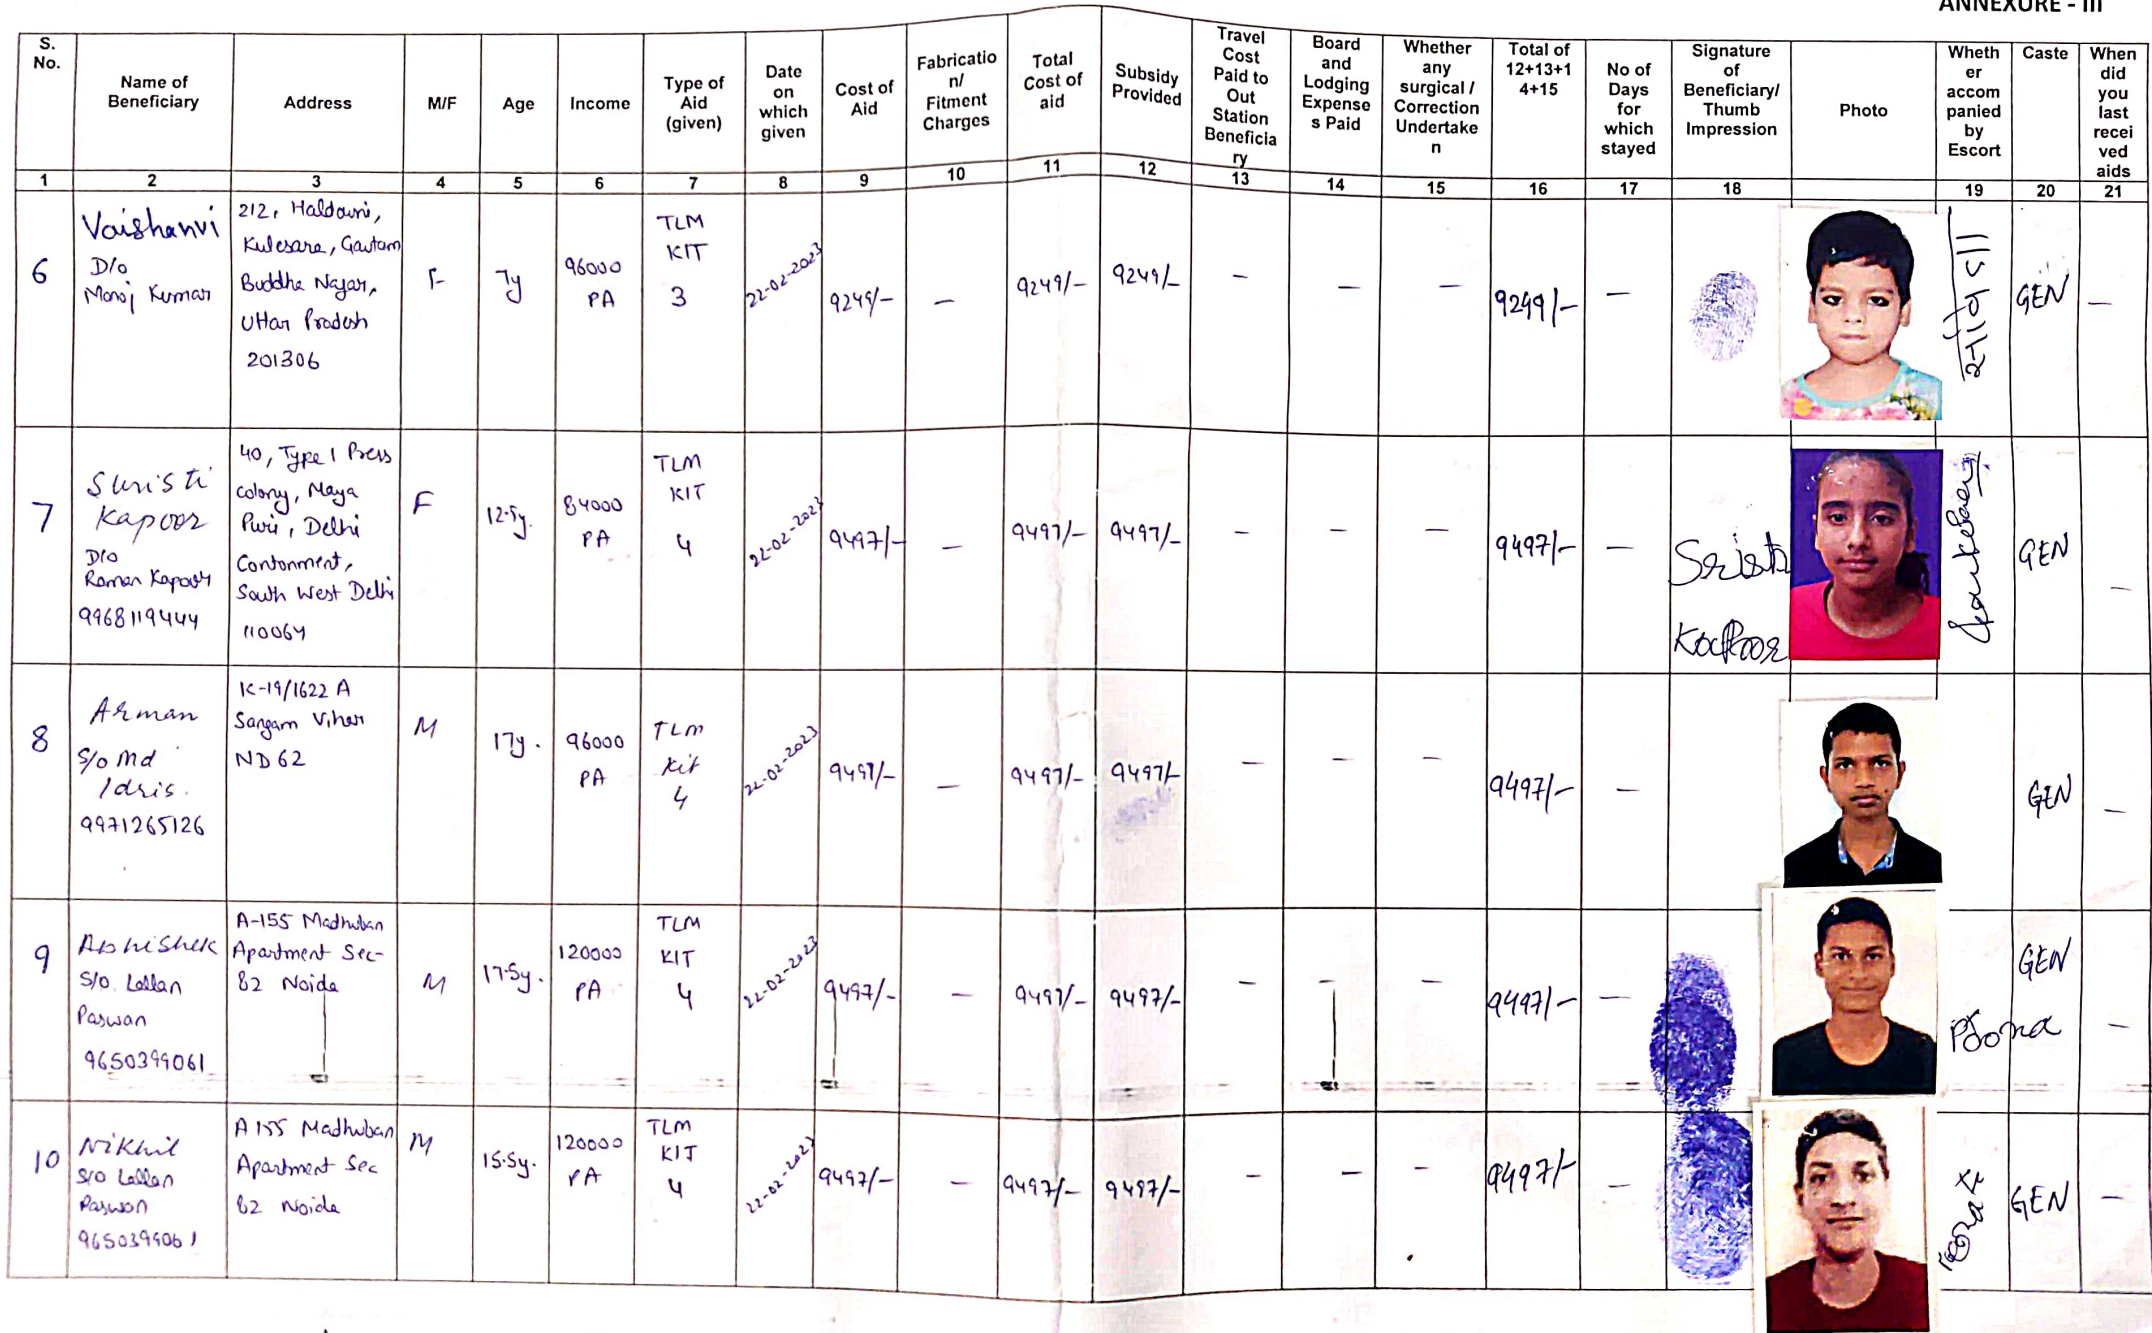 ANNEXURE - III
S. No.
Name of Beneficiary
Address
M/F
Age
Income
Type of Aid (given)
Date on which given
Cost of Aid
Fabricatio n/ Fitment Charges
Total Cost of aid
Subsidy Provided
Travel Cost Paid to Out Station Beneficia ry
Board and Lodging Expense s Paid
Whether any surgical / Correction Undertake n
Total of 12+13+1 4+15
No of Days for which stayed
Signature of Beneficiary/ Thumb Impression
Photo
Wheth er accom panied by Escort
Caste
When did you last recei ved aids
1 2 3 4 5 6 7 8 9 10 11 12 13 14 15 16 17 18 19 20 21
6
Vaishanvi
D/o
Manoj Kumar
212, Haldouni,
Kulesara, Gautam
Buddha Nagar,
Uttar Pradesh
201306
F
7y
96000
PA
TLM
KIT
3
22-02-2023
9249/-
—
9249/-
9249/-
—
—
—
9249/-
—
GEN
—
7
Sristi
Kapoor
D/o
Raman Kapoor
9968119444
40, Type 1 Press
colony, Maya
Puri, Delhi
Contonment,
South West Delhi
110064
F
12.5y.
84000
PA
TLM
KIT
4
22-02-2023
9497/-
—
9497/-
9497/-
—
—
—
9497/-
—
Sristi
Kapoor
GEN
—
8
Arman
S/o Md
Idris.
9971265126
K-19/1622 A
Sangam Vihar
ND 62
M
17y.
96000
PA
TLM
Kit
4
22-02-2023
9497/-
—
9497/-
9497/-
—
—
—
9497/-
—
GEN
—
9
Abhishek
S/o. Lallan
Paswan
9650399061
A-155 Madhuban
Apartment Sec-
82 Noida
M
17.5y.
120000
PA
TLM
KIT
4
22-02-2023
9497/-
—
9497/-
9497/-
—
—
—
9497/-
—
GEN
—
10
Nikhil
S/o Lallan
Paswan
9650399061
A 155 Madhuban
Apartment Sec
82 Noida
M
15.5y.
120000
PA
TLM
KIT
4
22-02-2023
9497/-
—
9497/-
9497/-
—
—
—
9497/-
—
GEN
—